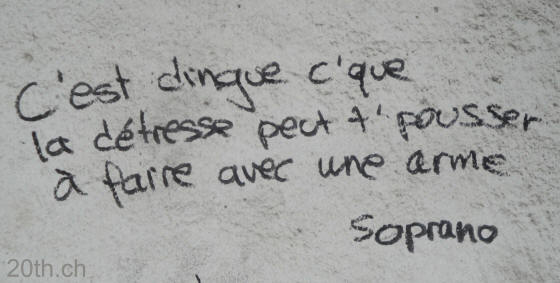 C'est dingue c'que
la détresse peut t'pousser
à faire avec une arme
Soprano
20th.ch